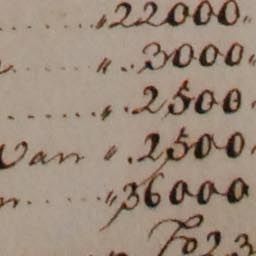 ......„22000„
„..3000„
.......„.2500.
Van „.2500.
n....„36000
To23